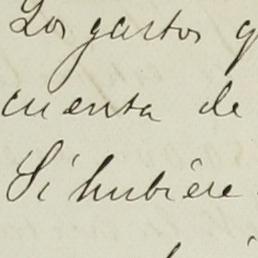 Los gastos q
cuenta de
Si hubiere